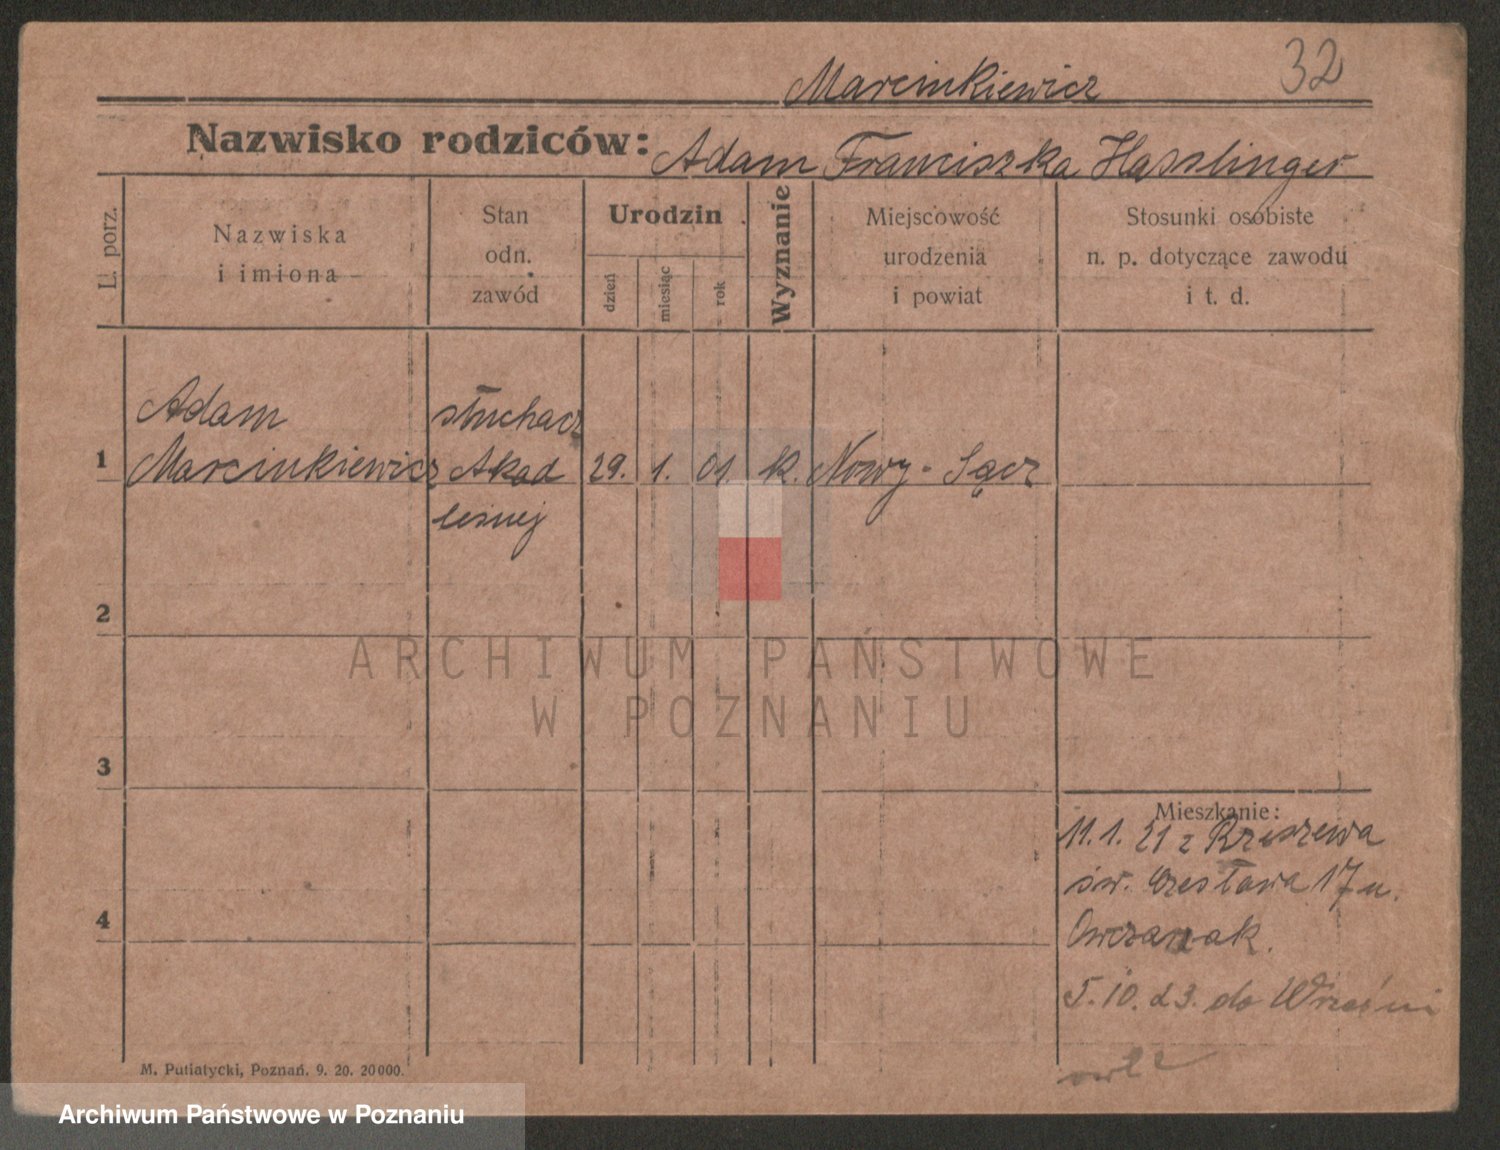 32
Marcinkiewicz
Nazwisko rodziców: Adam Franciszka Hasslinger
L. porz.
Nazwiska
i imiona
Stan
odn.
zawód
Urodzin
dzień
miesiąc
rok
Wyznanie
Miejscowość
urodzenia
i powiat
Stosunki osobiste
n. p. dotyczące zawodu
i t. d.
Adam słuchacz
1 Marcinkiewicz Akad 29. 1. 01. k. Nowy-Sącz
leśnej
2
ARCHIWUM PAŃSTWOWE
W POZNANIU
3
Mieszkanie:
11. 1. 21 z Rzeszewa
św. Czesława 17 u.
4 Owczarzak.
5. 10. 23. do Wrześni
M. Putiatycki, Poznań. 9. 20. 20000.
Archiwum Państwowe w Poznaniu